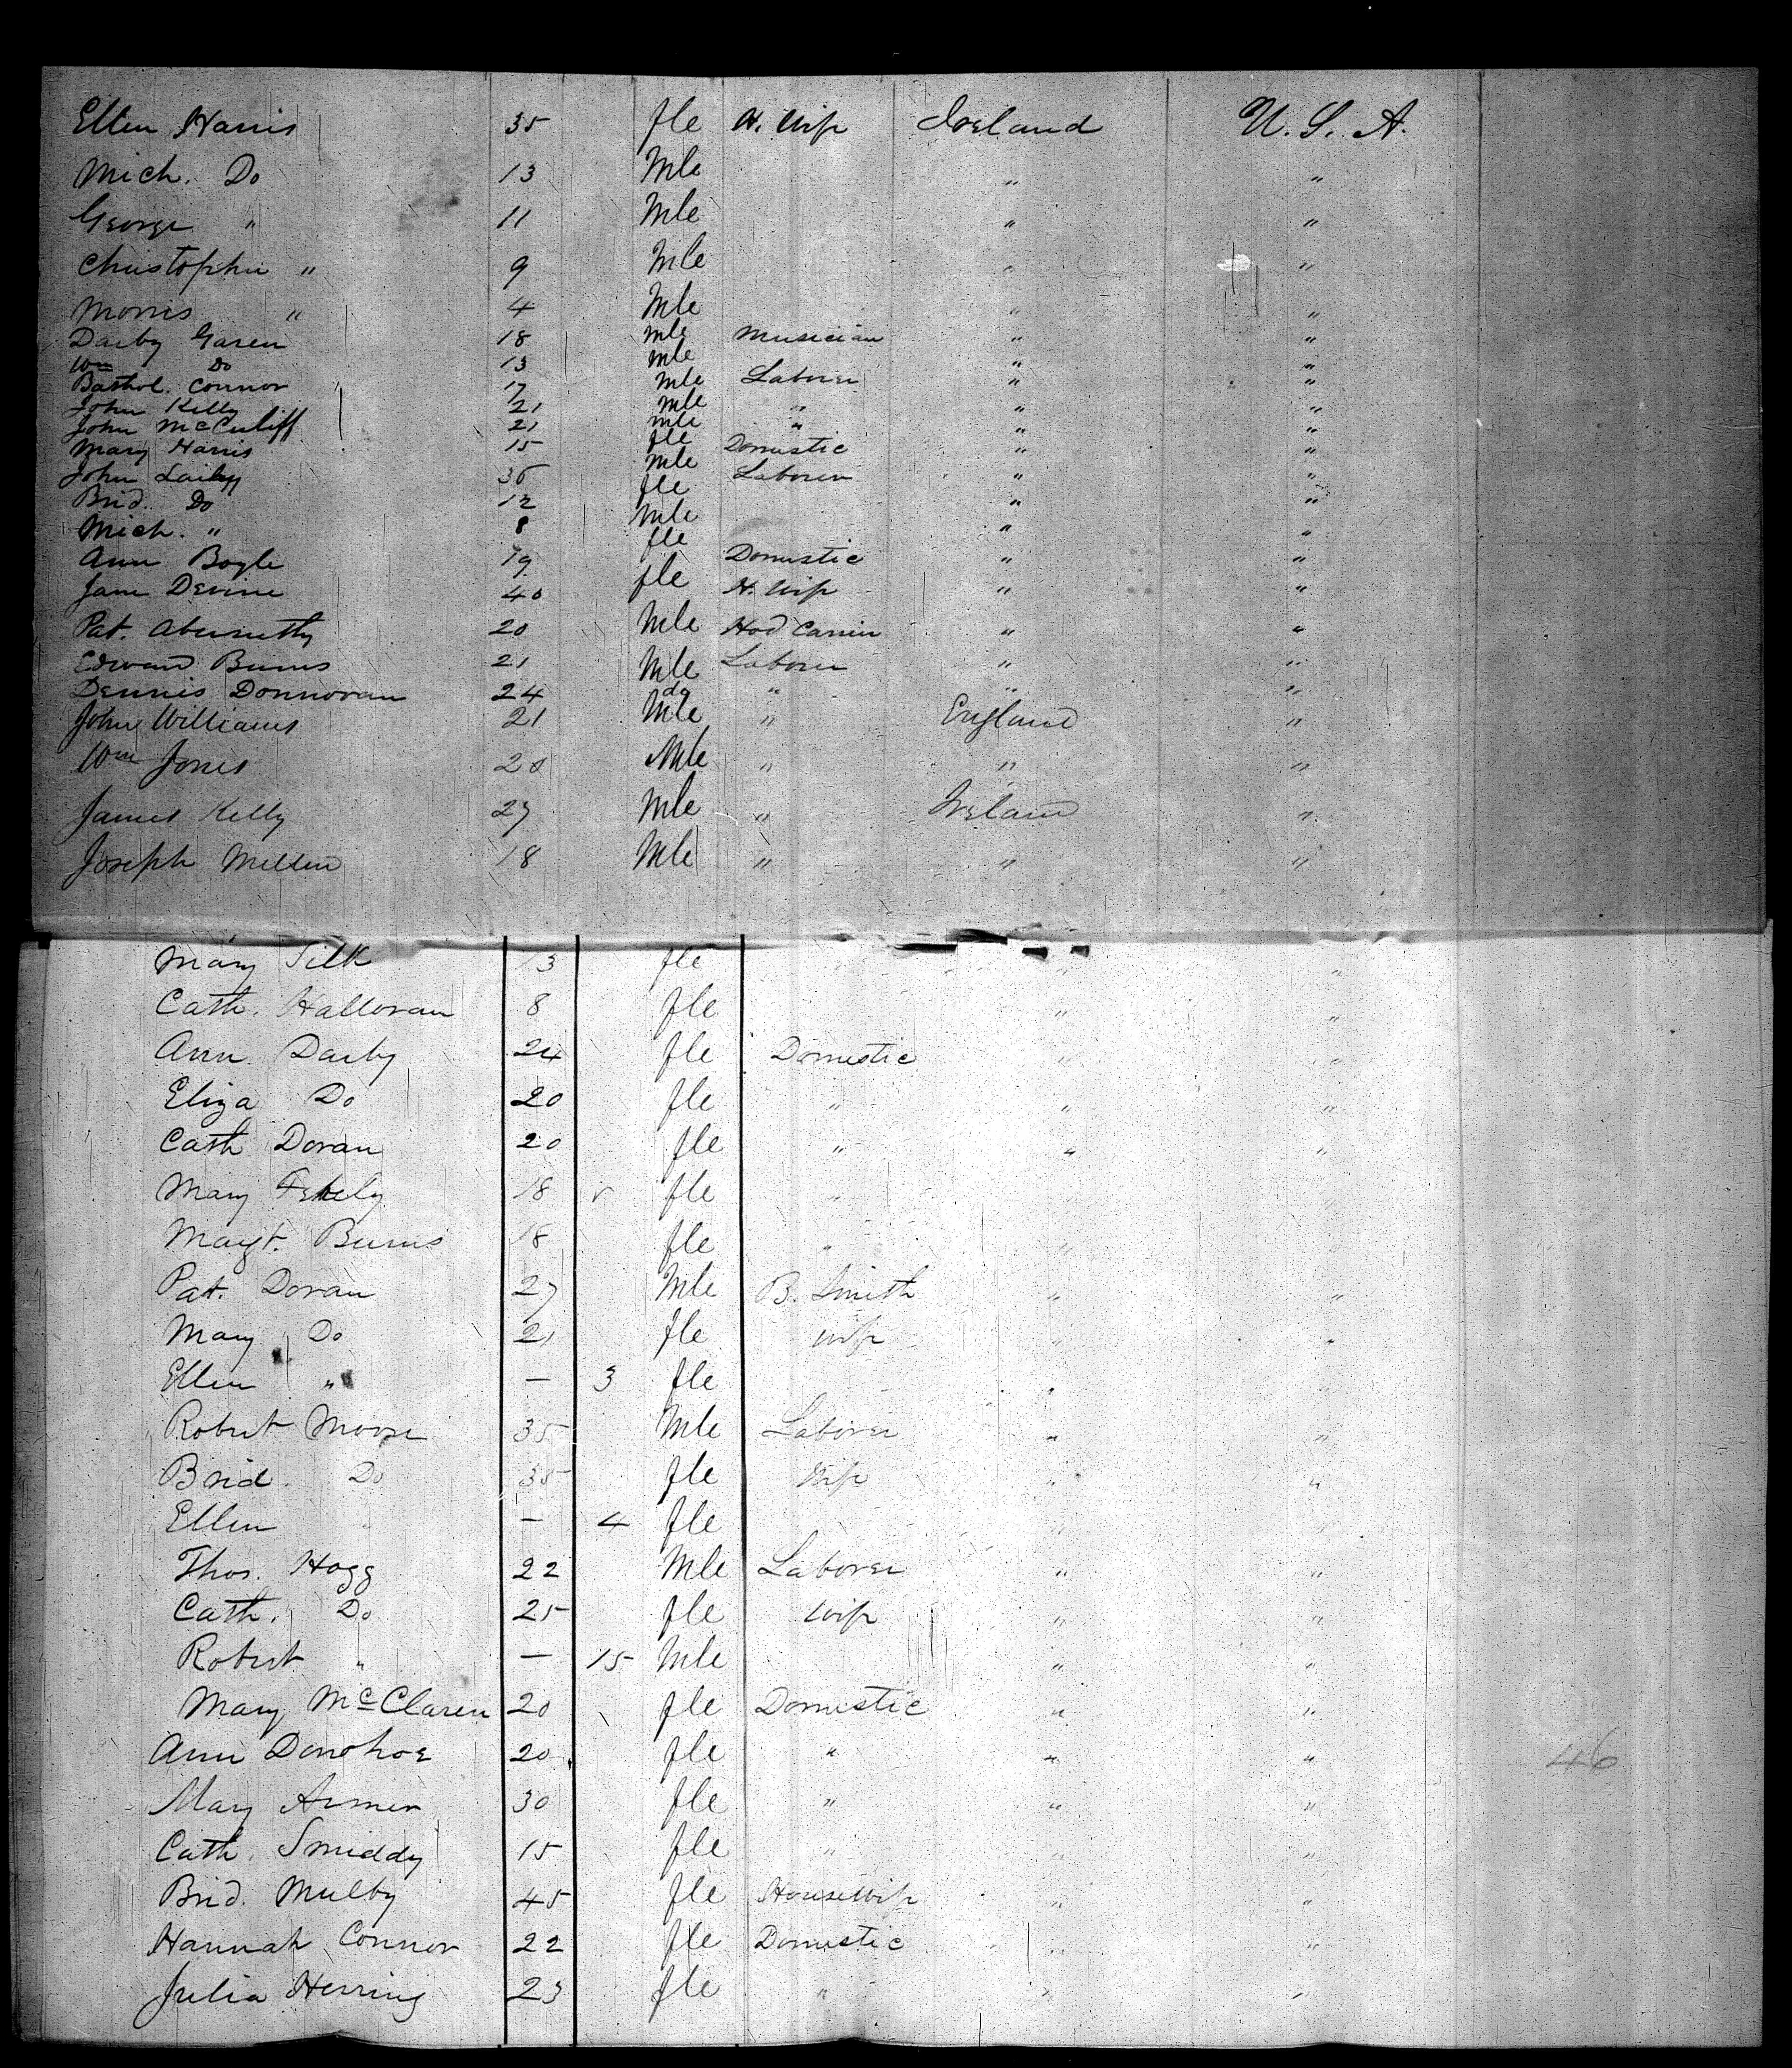 Ellen Harris 35 fle H. Wife Ireland U. S. A.
Mich. Do 13 Mle " "
George " 11 Mle " "
Christopher " 9 Mle " "
Morris " 4 Mle " "
Darby Garen 18 mle Musician " "
Wm Do 13 mle " "
Barthol. Connor 17 mle Laborer " "
John Kelly 21 mle " " "
John McCuliff 21 mle " " "
Mary Harris 15 fle Domestic " "
John 36 mle Laborer " "
Brid. Do 12 fle " "
Mich. " 8 Mle " "
Ann Bogle 19 fle Domestic " "
Jane Devine 40 fle H. Wife " "
Pat. Abernethy 20 Mle Hod Carrier " "
Edward Burns 21 Mle Laborer " "
Dennis Donnovan 24 do " " "
John Williams 21 Mle " England "
Wm Jones 20 Mle " " "
James Kelly 27 Mle " Ireland "
Joseph 18 Mle " " "
Mary Silk 13 fle " "
Cath. Halloran 8 fle " "
Ann Darby 24 fle Domestic " "
Eliza Do 20 fle " " "
Cath Doran 20 fle " " "
Mary 18 fle " " "
Margt. Burns 18 fle " " "
Pat. Doran 27 Mle B. Smith " "
Mary Do 21 fle Wife " "
Ellen " — 3 fle " "
Robert Moore 35 Mle Laborer " "
Brid. Do 35 fle Wife " "
Ellen " — 4 fle " "
Thos. Hogg 22 Mle Laborer " "
Cath. Do 25 fle Wife " "
Robert " — 15 Mle " "
Mary McClaren 20 fle Domestic " "
Ann Donohoe 20 fle " " " 46
Mary Armer 30 fle " " "
Cath. Smiddy 15 fle " " "
Brid. Mulby 45 fle Housewife " "
Hannah Connor 22 fle Domestic " "
Julia Herring 23 fle " " "